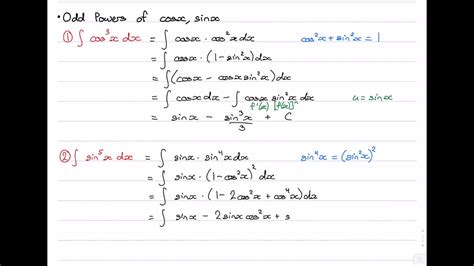 • Odd Powers of cosx, sinx
① ∫ cos³x dx = ∫ cosx · cos²x dx    cos²x + sin²x = 1
= ∫ cosx · (1 - sin²x) dx
= ∫(cosx - cosx sin²x) dx
= ∫ cosx dx - ∫ cosx sin²x dx    u = sinx
f'(x) [f(x)]ⁿ
= sinx - sin³x/3 + C
② ∫ sin⁵x dx = ∫ sinx · sin⁴x dx    sin⁴x = (sin²x)²
= ∫ sinx · (1 - cos²x)² dx
= ∫ sinx · (1 - 2cos²x + cos⁴x) dx
= ∫ sinx - 2sinx cos²x + s